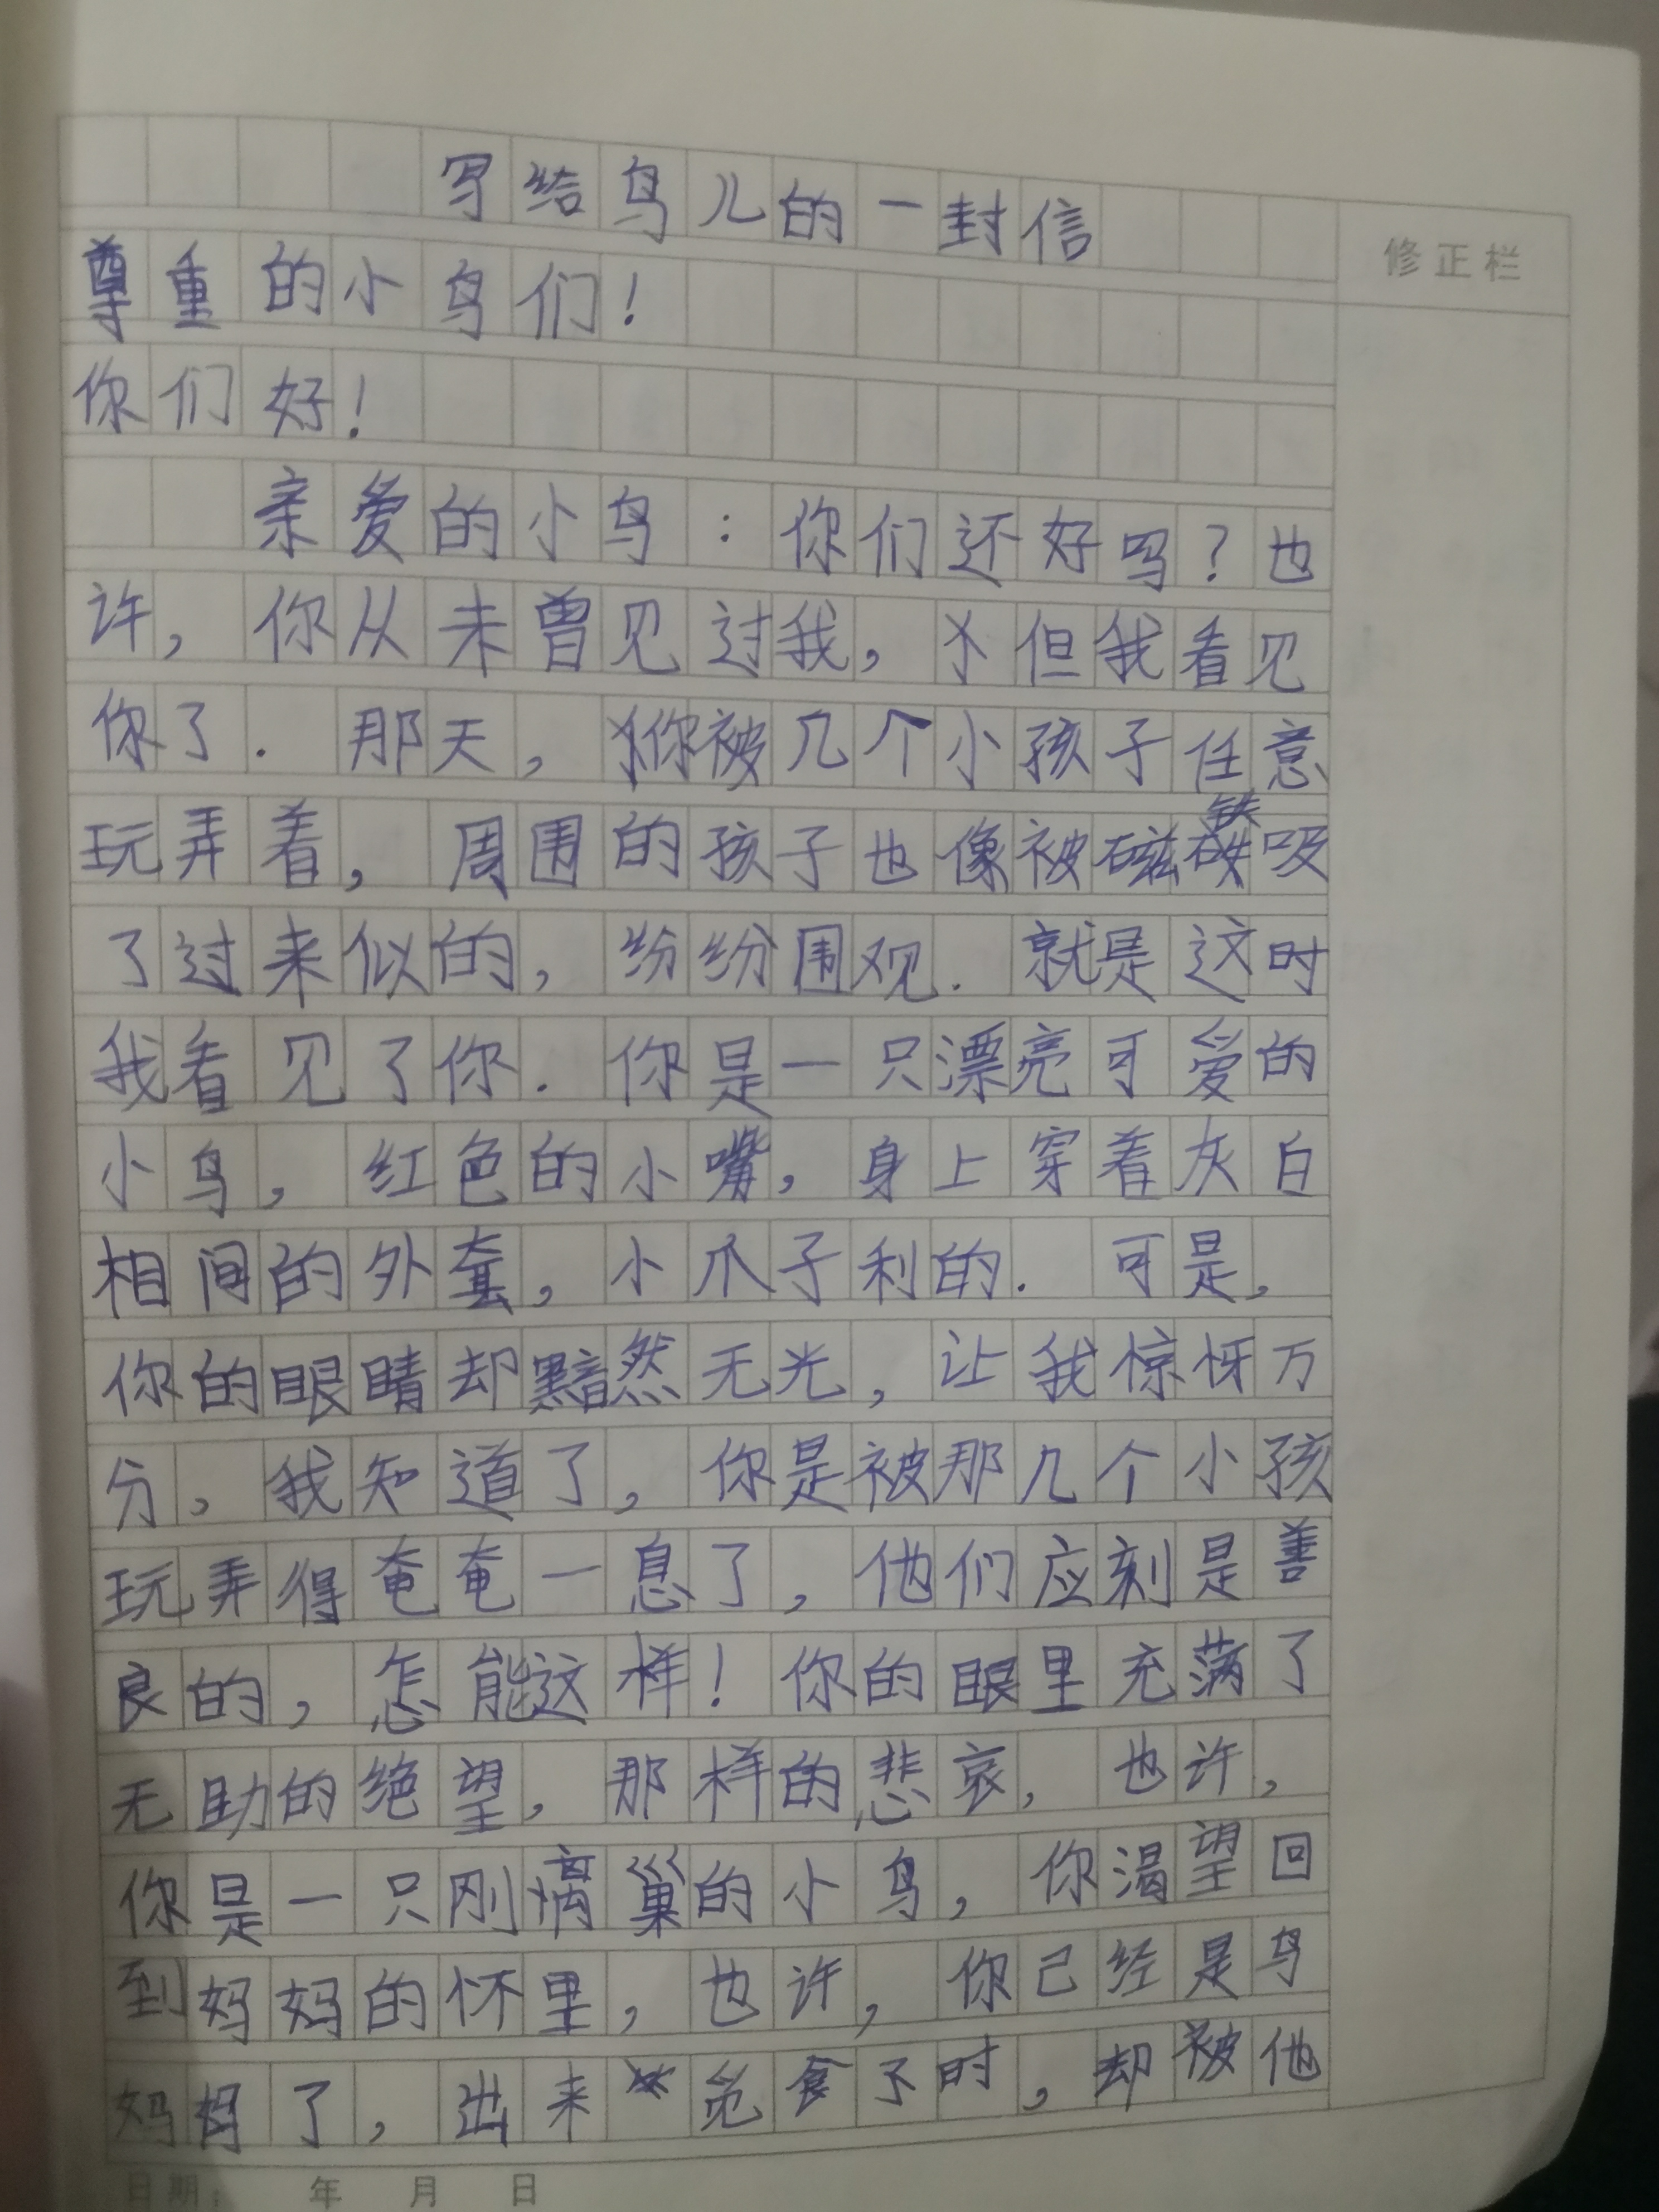 写给鸟儿的一封信
修正栏
尊重的小鸟们!
你们好!
亲爱的小鸟:你们还好吗?也
许,你从未曾见过我,但我看见
你了.那天,你被几个小孩子任意
玩弄着,周围的孩子也像被磁铁吸
了过来似的,纷纷围观.就是这时
我看见了你.你是一只漂亮可爱的
小鸟,红色的小嘴,身上穿着灰白
相间的外套,小爪子利的.可是,
你的眼睛却黯然无光,让我惊怀万
分,我知道了,你是被那几个小孩
玩弄得奄奄一息了,他们应刻是善
良的,怎能这样!你的眼里充满了
无助的绝望,那样的悲哀,也许,
你是一只刚离巢的小鸟,你渴望回
到妈妈的怀里,也许,你已经是鸟
妈妈了,出来觅食子时,却被他
日期: 年 月 日